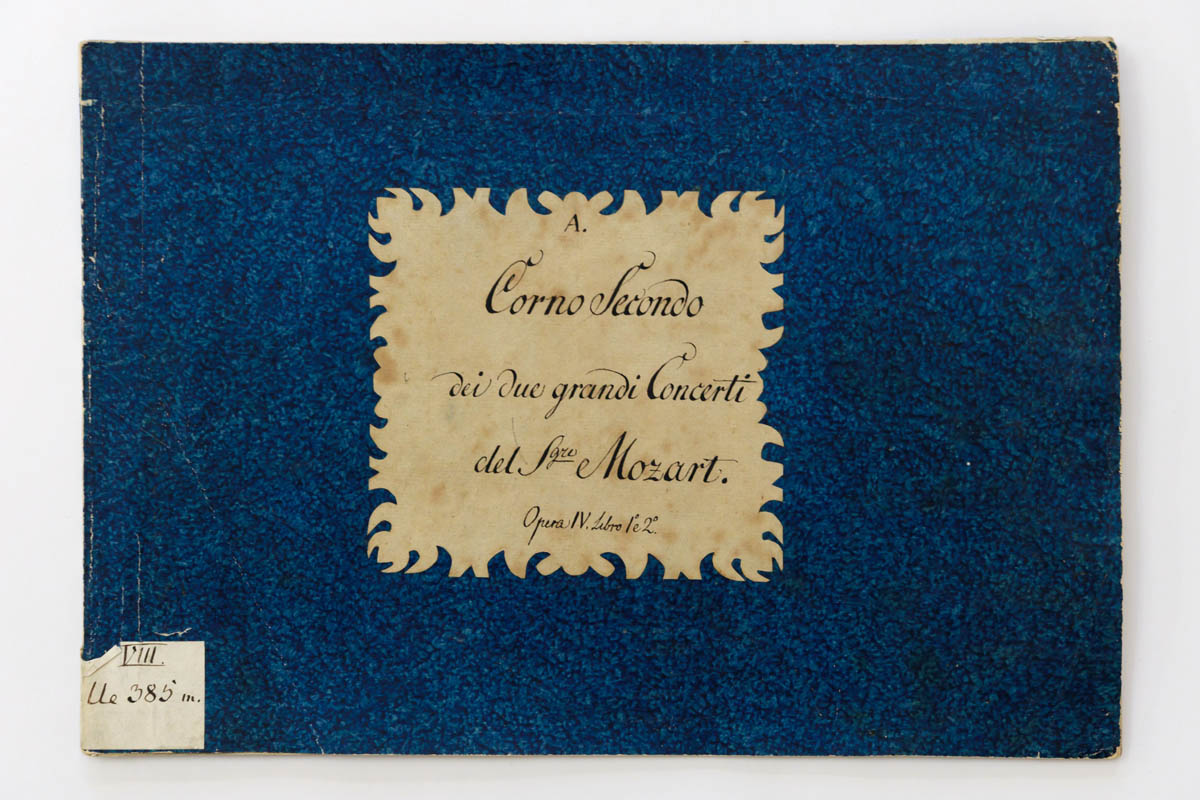 A.
Corno Secondo
dei due grandi Concerti
del Sgre Mozart.
Opera IV. Libro 1º e 2º.
VIII.
Ue 385 m.